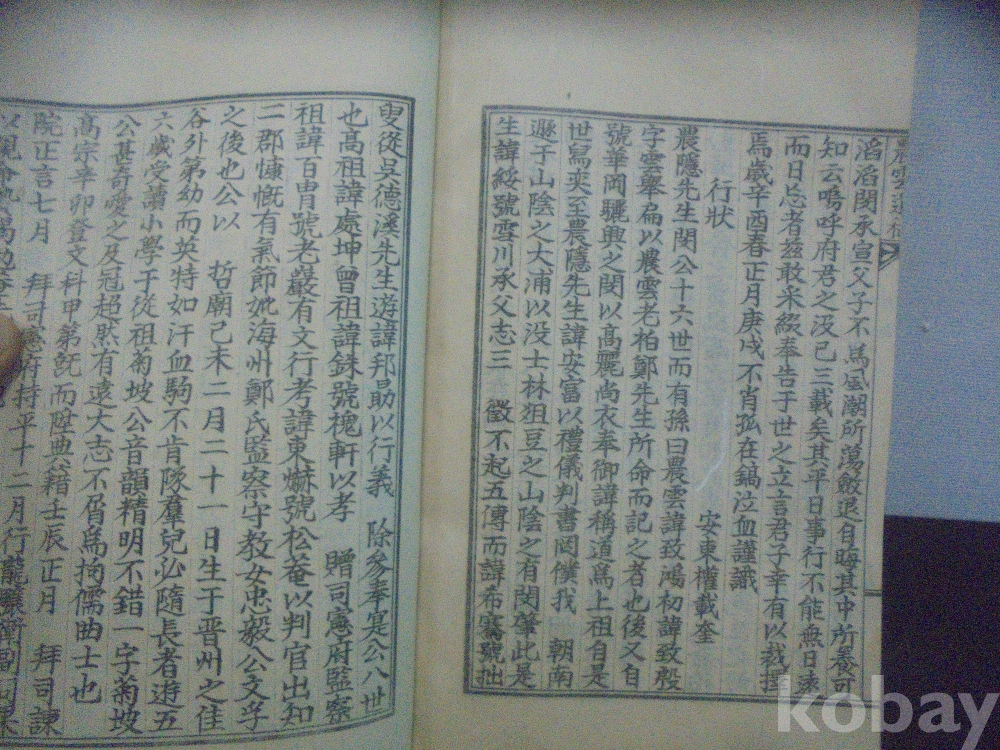 滔滔閔承宣父子不爲風潮所蕩斂退自晦其中所養可
知云嗚呼府君之沒已三載矣其平日事行不能無日遠
而日忘者玆敢采綴奉告于世之立言君子幸有以裁擇
焉歲辛酉春正月庚戌不肖孤在鎬泣血謹識
行狀
安東權載奎
農隱先生閔公十六世而有孫曰農雲諱致鴻初諱致
字雲擧扁以農雲老柏鄭先生所命而記之者也後又自
號華岡驪興之閔以高麗尙衣奉御諱稱道爲上祖自是
世寫奕至農隱先生諱安富以禮儀判書罔僕我 朝南
遯于山陰之大浦以沒士林俎豆之山陰之有閔肇此是
生諱綏號雪川承父志三 徵不起五傳而諱希騫號拙
叟從吳德溪先生遊諱邦勗以行義 除參奉是公八世
也高祖諱處坤曾祖諱銖號槐軒以孝 贈司憲府監察
祖諱百胄號老巖有文行考諱東爀號松庵以判官出知
二郡慷慨有氣節妣海州鄭氏監察守敎女忠毅公文孚
之後也公以 哲廟己未二月二十一日生于晋州之佳
谷外第幼而英特如汗血駒不肯隊羣兒必隨長者遊五
六歲受讀小學于從祖菊坡公音韻精明不錯一字菊坡
公甚奇愛之及冠超然有遠大志不屑爲拘儒曲士也
高宗辛卯登文科甲第旣而陞典籍壬辰正月 拜司諫
院正言七月 拜司憲府持平十二月行龍驤衛副司果
kobay